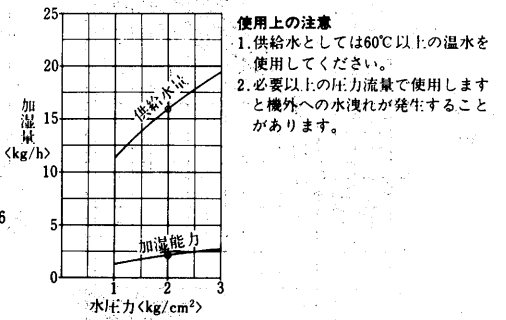 25
20
15
10
5
0
加湿量
<kg/h>
供給水量
加湿能力
1 2 3
水圧力<kg/cm²>
6
使用上の注意
1.供給水としては60℃以上の温水を
使用してください。
2.必要以上の圧力流量で使用します
と機外への水洩れが発生すること
があります。